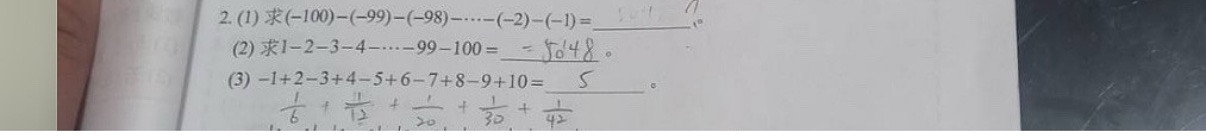 2. (1) 求(−100)−(−99)−(−98)−⋯−(−2)−(−1)=______。
(2) 求1−2−3−4−⋯−99−100= −5048 。
(3) −1+2−3+4−5+6−7+8−9+10= 5 。
1/6 + 1/12 + 1/20 + 1/30 + 1/42